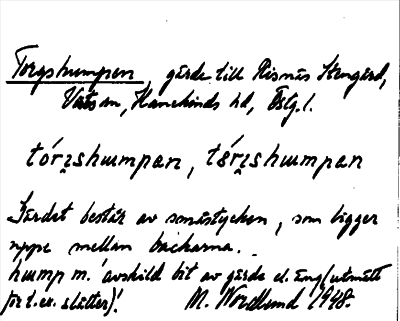 Torpshumpen, gärde till Risnäs Stengård,
V. socken, Hanekinds hd, Östg. l.
tórı̥shumpan, tórı̥shumpan
Gärdet består av småstycken, som ligger
uppe mellan backarna.
hump m. 'avskild bit av gärde el. äng (utmätt
för t.ex. slåtter)'. M. Nordlund 1948.